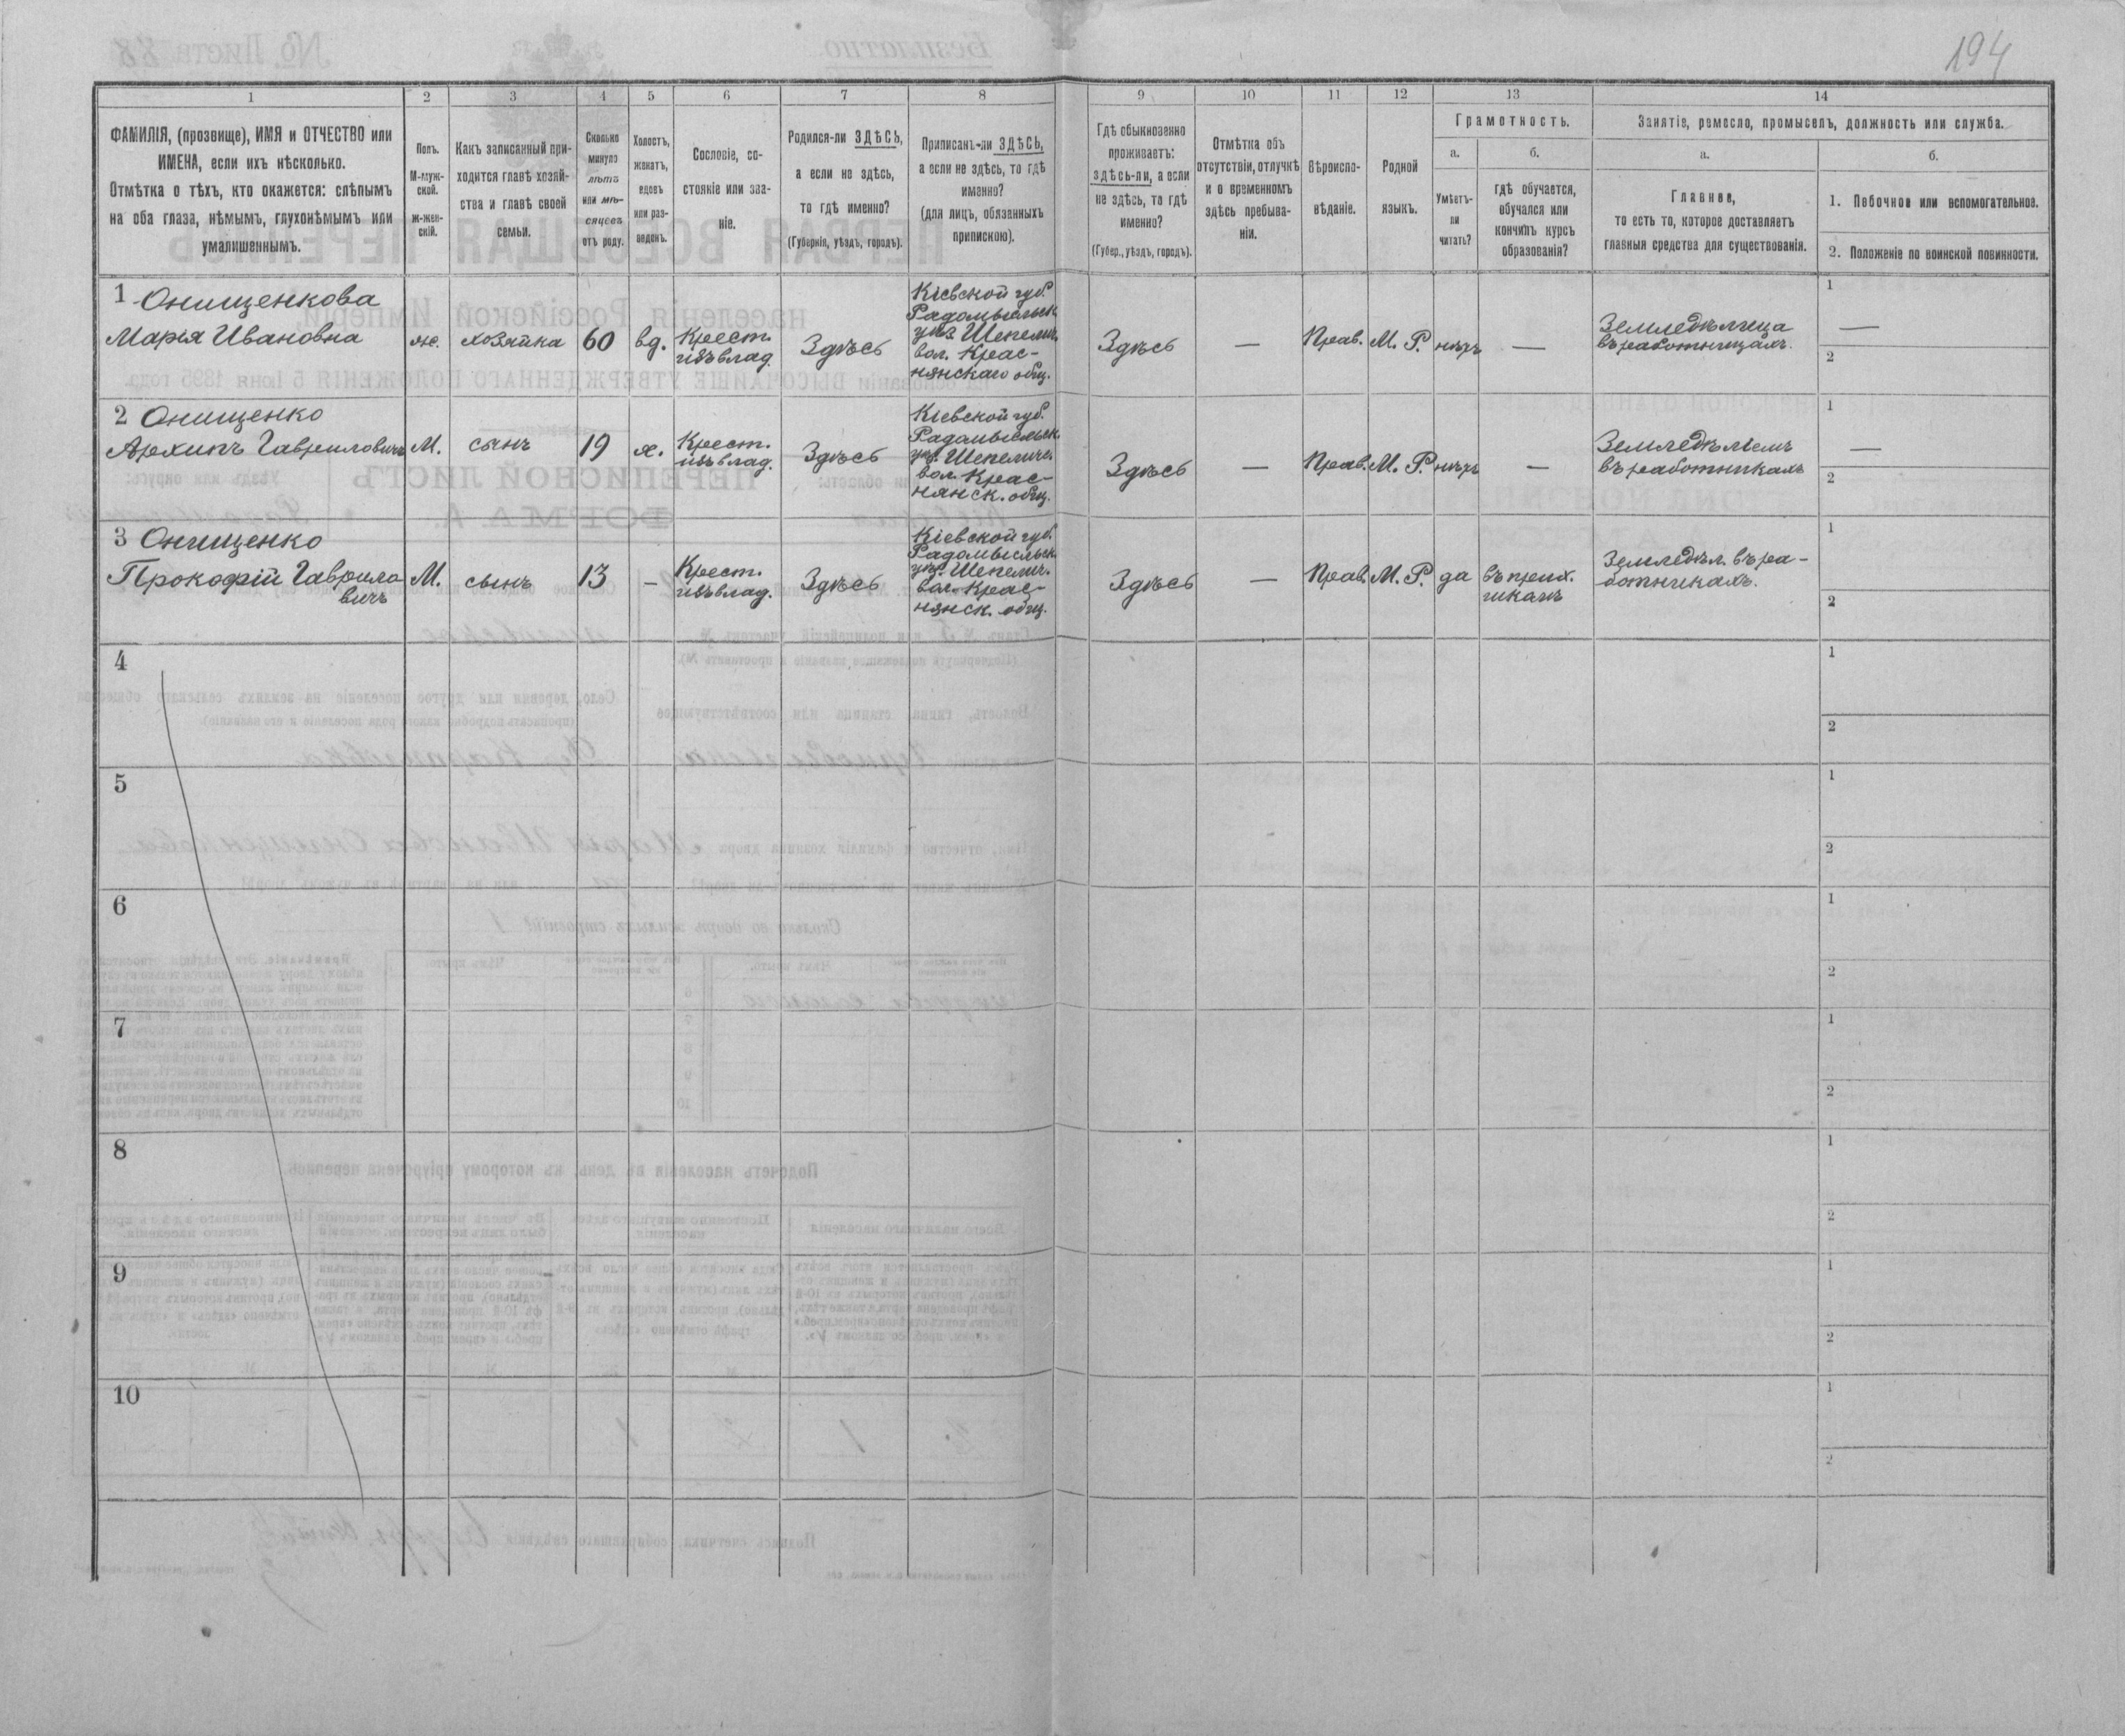 194
1
2
3
4
5
6
7
8
9
10
11
12
13
14
ФАМИЛІЯ, (прозвище), ИМЯ и ОТЧЕСТВО или
ИМЕНА, если ихъ нѣсколько.
Отмѣтка о тѣхъ, кто окажется: слѣпымъ
на оба глаза, нѣмымъ, глухонѣмымъ или
умалишеннымъ.
Полъ.
М-муж-
ской.
ж-жен-
скій.
Какъ записанный при-
ходится главѣ хозяй-
ства и главѣ своей
семьи.
Сколько
минуло
лѣтъ
или мѣ-
сяцевъ
отъ роду.
Холостъ,
женатъ,
вдовъ
или раз-
веденъ.
Сословіе, со-
стояніе или зва-
ніе.
Родился-ли ЗДѢСЬ,
а если не здѣсь,
то гдѣ именно?
(Губернія, уѣздъ, городъ).
Приписанъ-ли ЗДѢСЬ,
а если не здѣсь, то гдѣ
именно?
(для лицъ, обязанныхъ
припискою).
Гдѣ обыкновенно
проживаетъ:
здѣсь-ли, а если
не здѣсь, то гдѣ
именно?
(Губер., уѣздъ, городъ).
Отмѣтка объ
отсутствіи, отлучкѣ
и о временномъ
здѣсь пребыва-
ніи.
Вѣроиспо-
вѣданіе.
Родной
языкъ.
Грамотность.
а.
Умѣетъ-
ли
читать?
б.
гдѣ обучается,
обучался или
кончилъ курсъ
образованія?
Занятіе, ремесло, промыселъ, должность или служба.
а.
Главное,
то есть то, которое доставляетъ
главныя средства для существованія.
б.
1. Побочное или вспомогательное.
2. Положеніе по воинской повинности.
1 Онищенкова
Марія Ивановна
ж.
хозяйка
60
вд.
Крест.
изъ влад.
Здѣсь
Кіевской губ.
Радомысльск.
уѣз. Шепелич.
вол. Крас-
нянскаго общ.
Здѣсь
—
Прав.
М. Р.
нѣтъ
—
Земледѣлица
въ работницахъ.
1
—
2
2 Онищенко
Архипъ Гавриловичъ
М.
сынъ
19
х.
Крест.
изъ влад.
Здѣсь
Кіевской губ.
Радомысльск.
уѣз. Шепелич.
вол. Крас-
нянск. общ.
Здѣсь
—
Прав.
М. Р.
нѣтъ
—
Земледѣлiемъ
въ работникахъ
1
—
2
3 Онищенко
Прокофій Гаврило
вичъ
М.
сынъ
13
—
Крест.
изъ влад.
Здѣсь
Кіевской губ.
Радомысльск.
уѣз. Шепелич.
вол. Крас-
нянск. общ.
Здѣсь
—
Прав.
М. Р.
да
Земледѣл. въ ра-
ботникахъ.
1
2
4
1
2
5
1
2
6
1
2
7
1
2
8
1
2
9
1
2
10
1
2